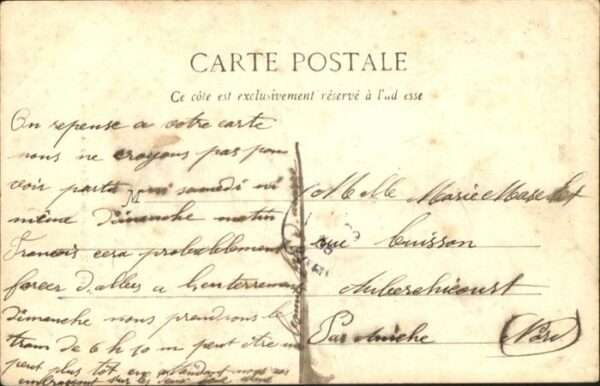 CARTE POSTALE
Ce côte est exclusivement réservé à l'ad esse
On repense a votre carte
nous ne croyons pas pou
voir partir ni samedi ni
même Dimanche matin
Francois cera probablement
forcer d'aller a l'enterrement
dimanche nous prendrons le
tram de 6 h 10 m peut être un
peut plus tot en attendant nous vos
embrassent sur les deux
Melle Marie Mase
rue Cuisson
Auberchicourt
Par Aniche (Nord)